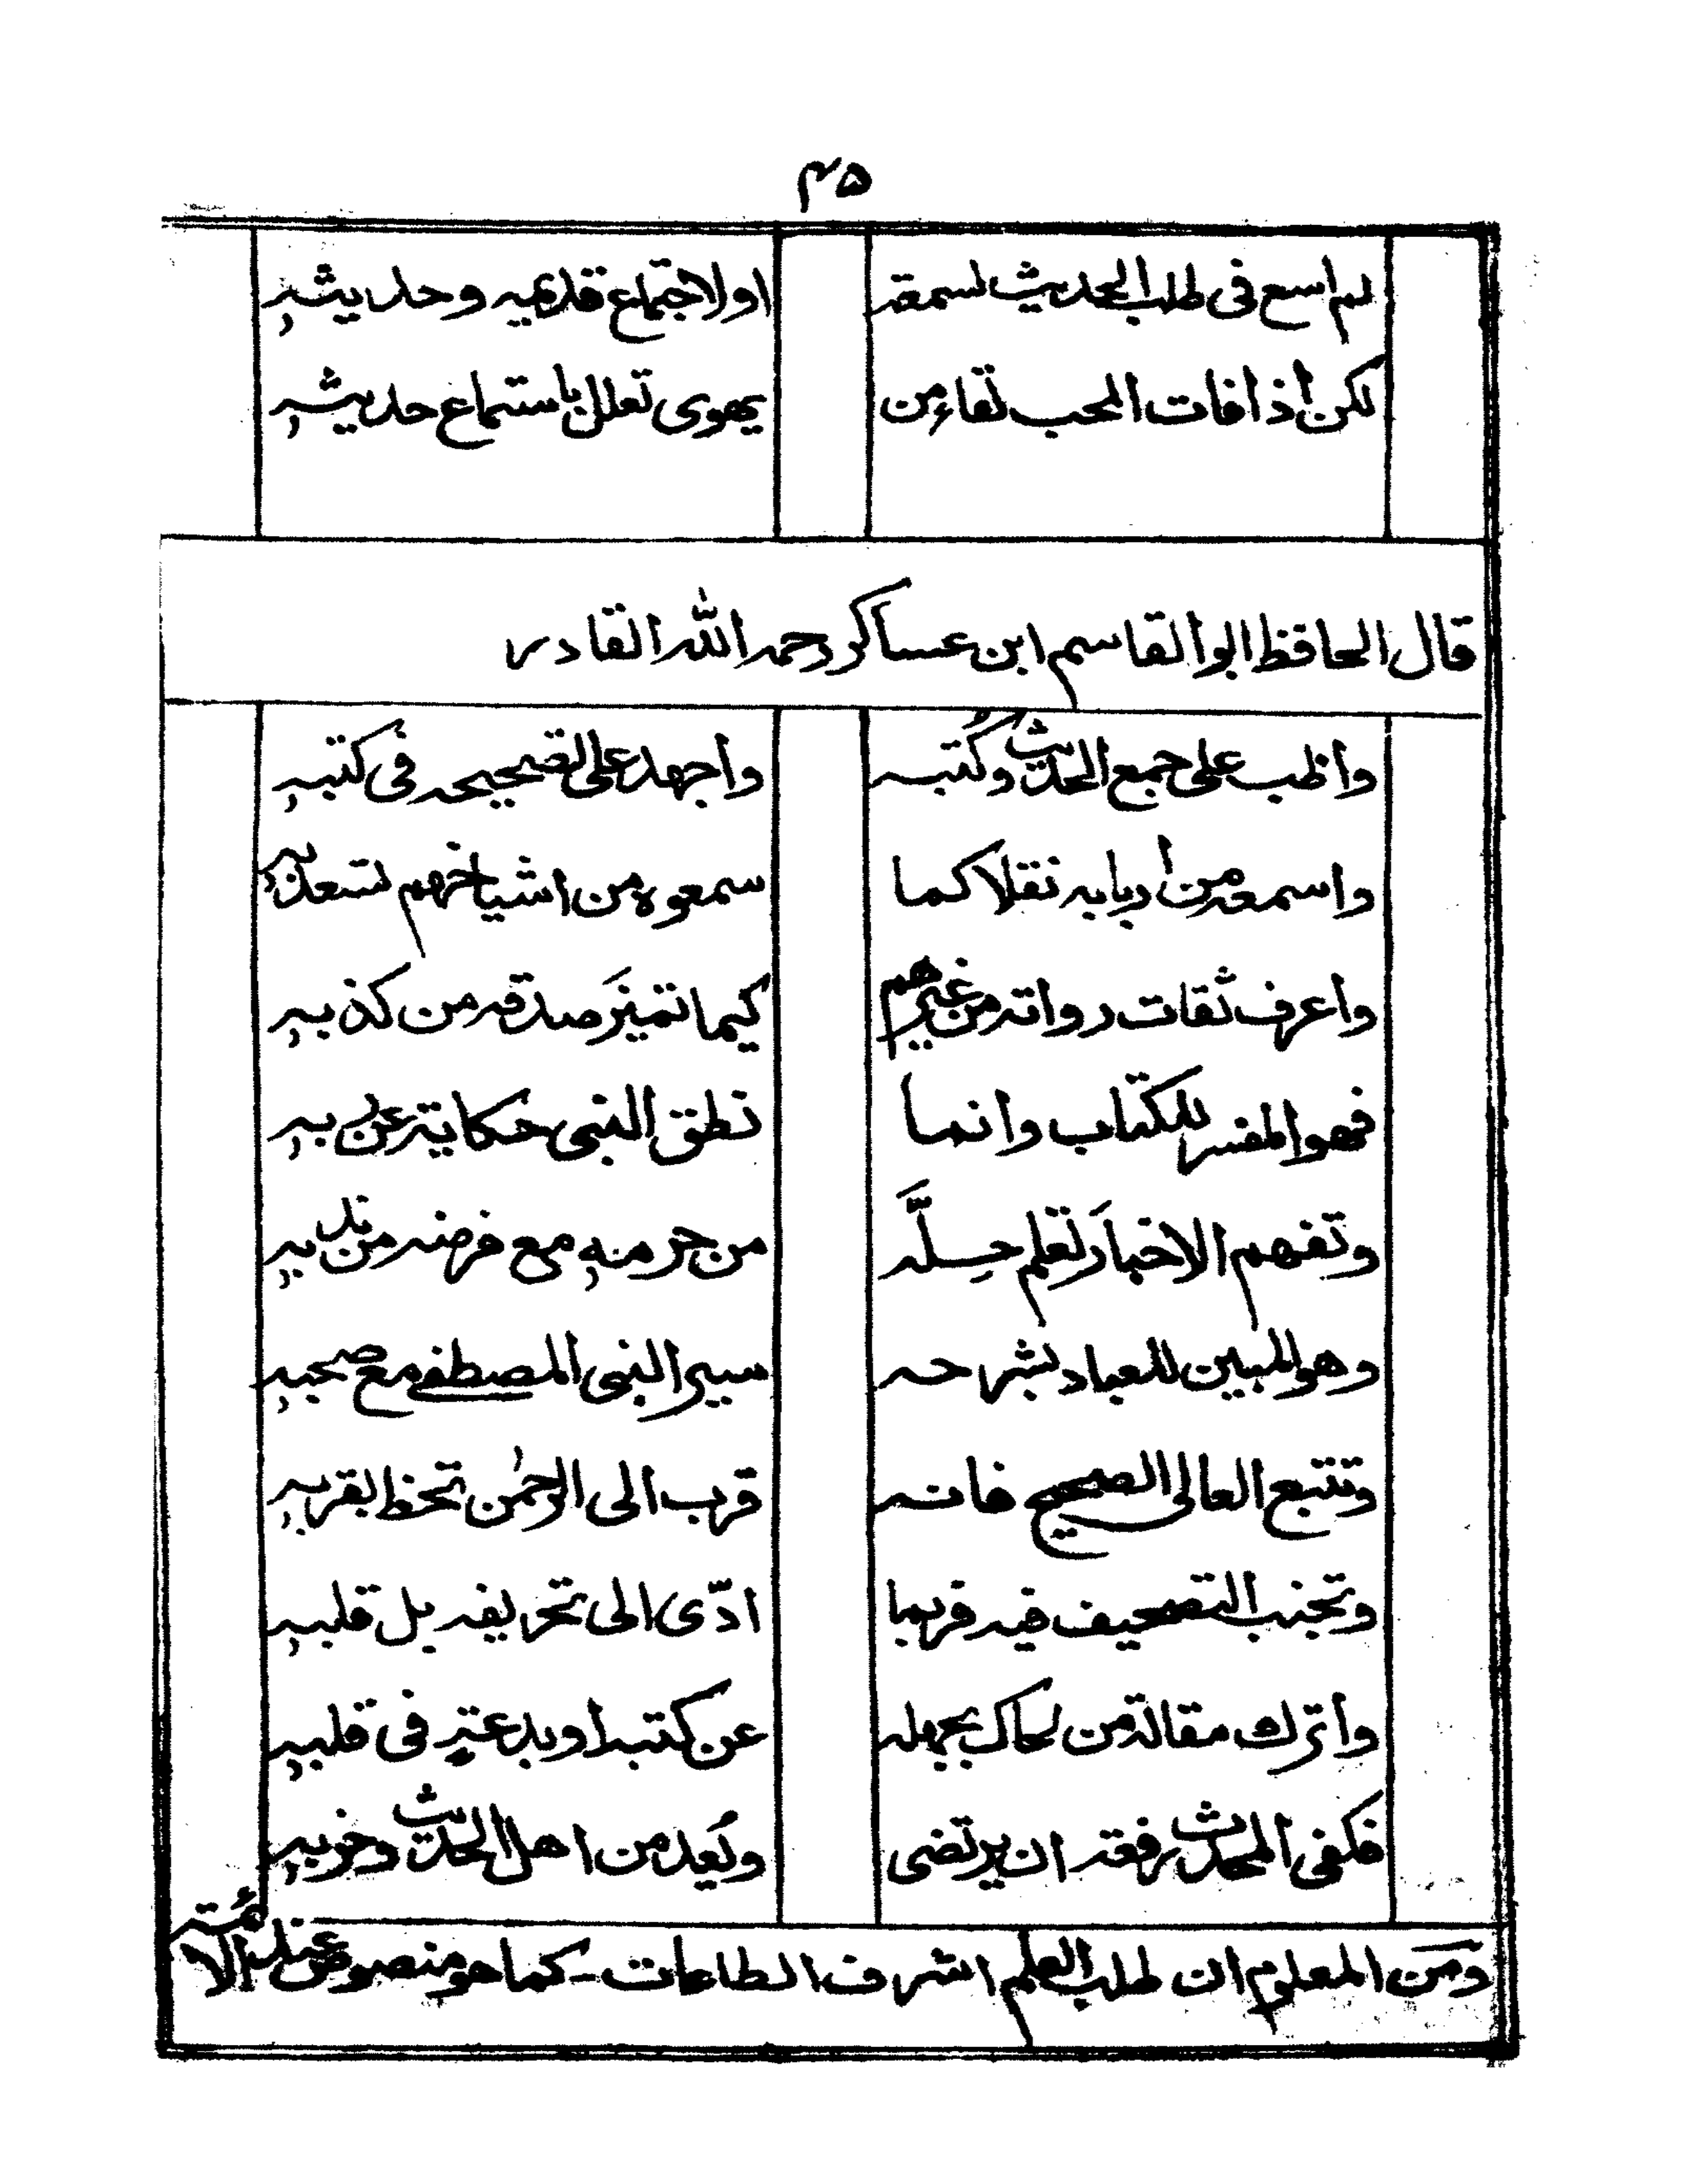 ۴۵
لم اسع فى طلب الحديث لسمعة اولاجتماع قديمه وحديثه
لكن اذافات المحب لقاء من يهوى تعلل باستماع حديثه
قال الحافظ ابوالقاسم ابن عساكر رحمه الله القادر
واظب على جمع الحديث وكتبه واجهد على تصحيحه فى كتبه
واسمعه من أربابه نقلا كما سمعوه من اشياخهم تسعد به
واعرف ثقات رواته من غيرهم كيما تميز صدقه من كذبه
فهوالمفسر للكتاب وانما نطق النبى حكاية عن ربه
وتفهم الاخبار تعلم حله من حرمنه مع فرضه من ندبه
وهوالمبين للعباد بشرحه سير النبى المصطفى مع صحبه
وتتبع العالى الصحيح فانه قرب الى الرحمٰن تحظ بقربه
وتجنب التصحيف فيه فربما ادّى الى تحريفه بل قلبه
واترك مقالة من لحاك بجهله عن كتبه اوبدعة فى قلبه
فكفى المحدث رفعة ان يرتضى ويُعد من اهل الحديث وحزبه
ومن المعلوم ان طلب العلم اشرف الطاعات - كما هو منصوص عند الائمة